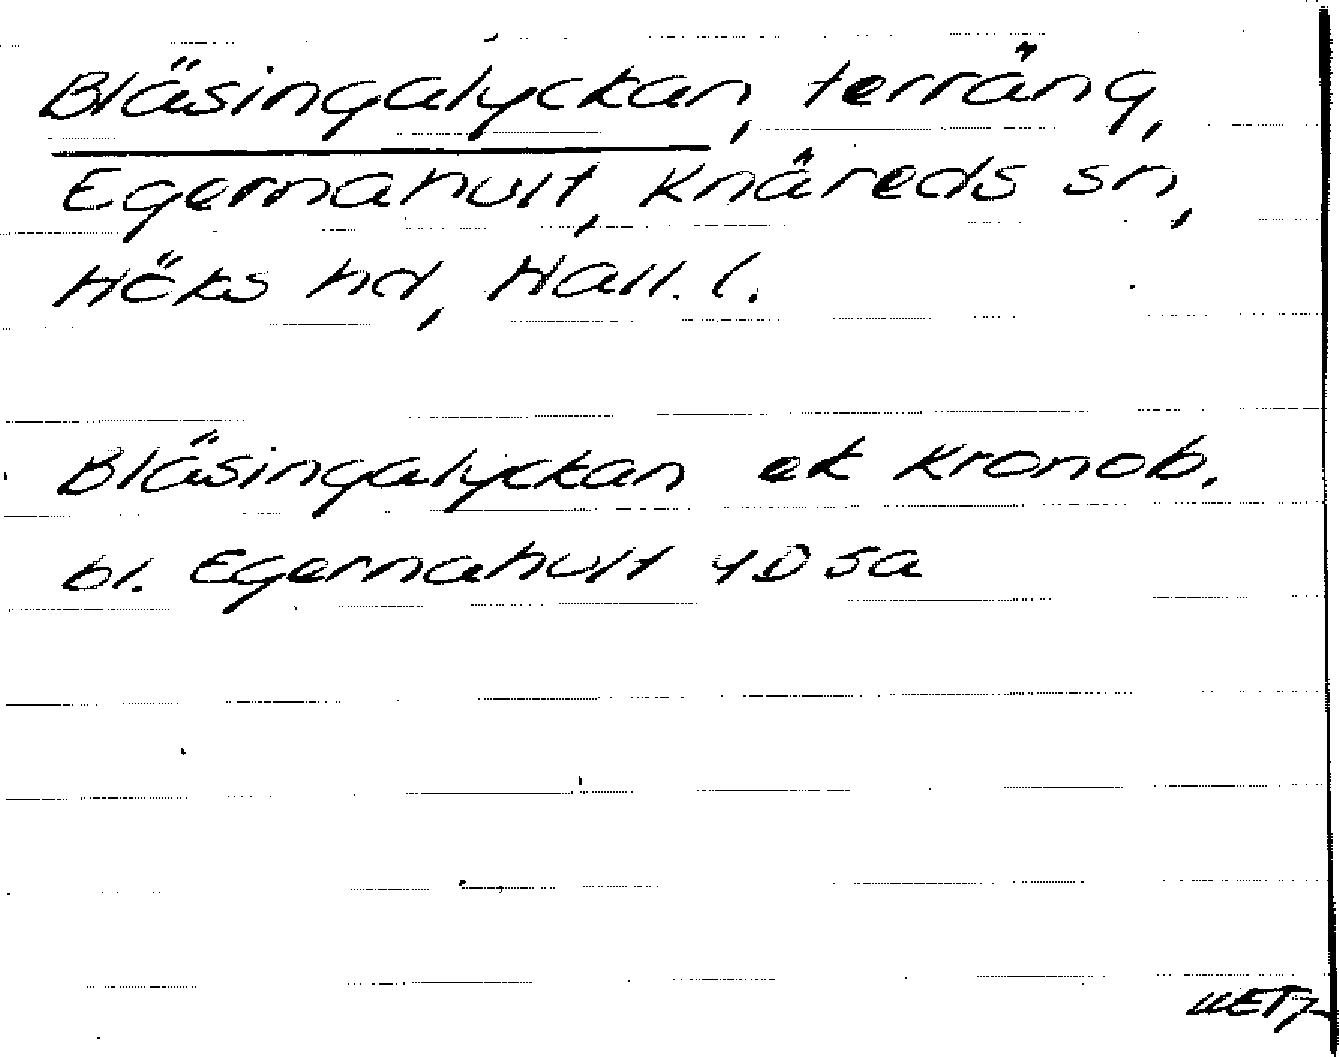 Bläsingalyckan, terräng,
Egernahult, Knäreds sn,
Höks hd, Hall. l.
Bläsingalyckan ek Kronob.
bl. Egernahult 4D5a